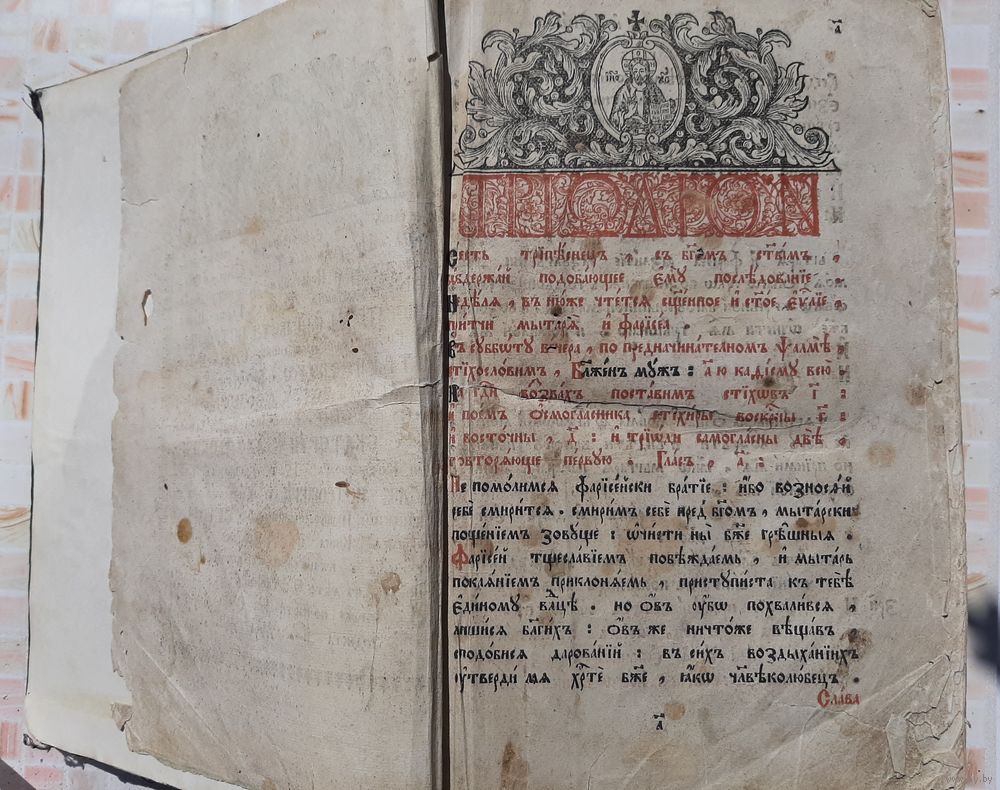 а҃
ІИ҃С ХС
ТРІѠДІОН
Сѝесть трїпѣснецъ, съ бг҃омъ ст҃ы́мъ,
ѡ҆бдержа́й подобающее є҆мꙋ̀ послѣдованїе
Недѣля, в̾ню́же чте́тся сщ҃е́нное и҆ ст҃о́е, є҆ѵⷢ҇лїе,
при́тчи мытаря̀ и҆ фарїсе́а.
Въ сꙋббѡ́тꙋ ве́чера, по предначина́телномъ ѱалмѣ̀,
стїхосло́вимъ, Бл҃же́нъ мꙋ́жъ: а҃ ю каѳі́смꙋ всю̀
На гдⷭ҇и возва́хъ поста́вимъ стїхѡ́въ і҃:
и҆ пое́мъ ѻ҆смогла́сника стїхи̑ры воскр҇ны г҃:
и҆ восто́чны, д҃: и҆ трїѡ́ди самогла́сны двѣ̀,
повторя́юще пе́рвꙋю. Гла́съ, а҃:
Не помо́лимся фарїсе́йски бра́тїе: и҆́бо возносѧ́й
себѐ смири́тся. смири́мъ себѐ пред̾ бг҃омъ, мыта́рски
поще́нїемъ зовꙋ́ще: ѡ҆чи́сти ны̀ бж҃е грѣ́шныя.
Фарїсе́й тщесла́вїемъ побѣжда́емь, и҆ мыта́рь
покая́нїемъ приклоня́емь, пристꙋпи́ста къ тебѣ̀
є҆ди́номꙋ влⷣцѣ. но ѻ҆́въ ᲂу҆́бѡ похвали́вся,
лиши́ся бл҃ги́хъ: ѻ҆́въ же ничто́же вѣща́въ
сподо́бися дарова́нїй: в̾ си́хъ воздыха́нїихъ
ᲂу҆тверди́ мя хрⷭ҇тѐ бж҃е, ꙗ҆́кѡ чл҃вѣколю́бецъ.
Сла́ва
а҃